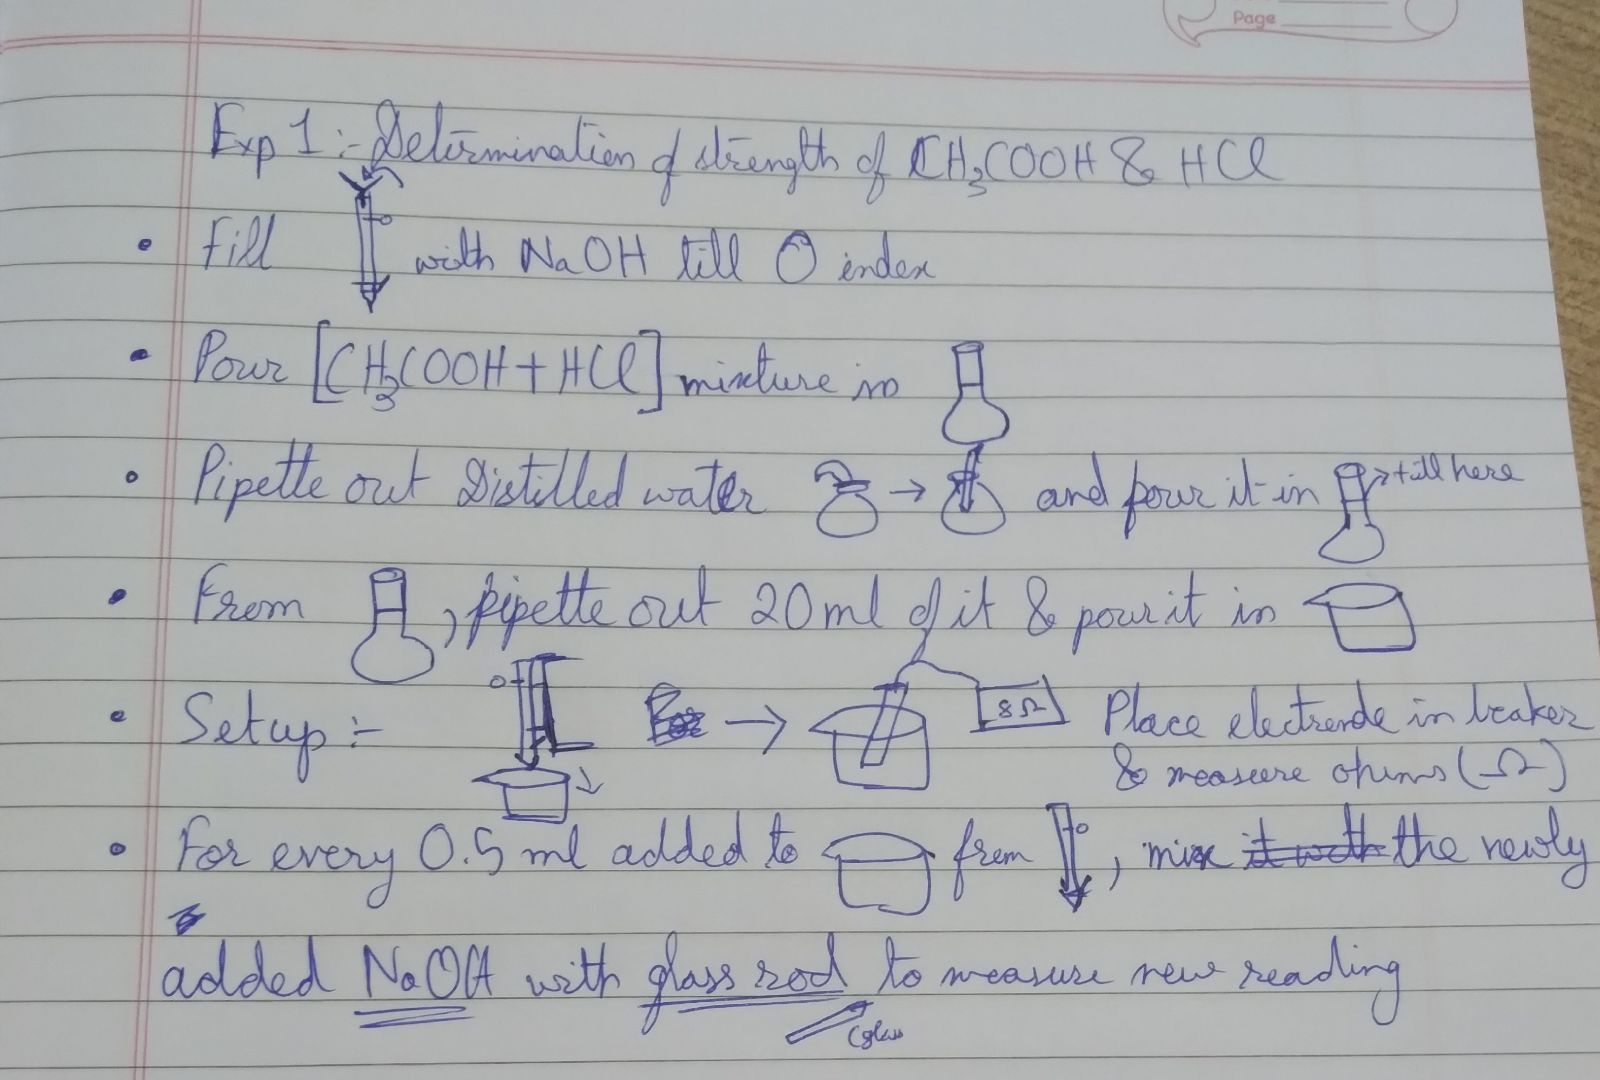 Page
Exp 1 :- Determination of strength of CH3COOH & HCl
• Fill with NaOH till 0 index
• Pour [CH3COOH + HCl] mixture in
• Pipette out Distilled water → and pour it in → till here
• From , pipette out 20 ml of it & pour it in
• Setup :- → 8Ω Place electrode in beaker
& measure ohms (Ω)
• For every 0.5 ml added to from , mix the newly
added NaOH with glass rod to measure new reading
(glass